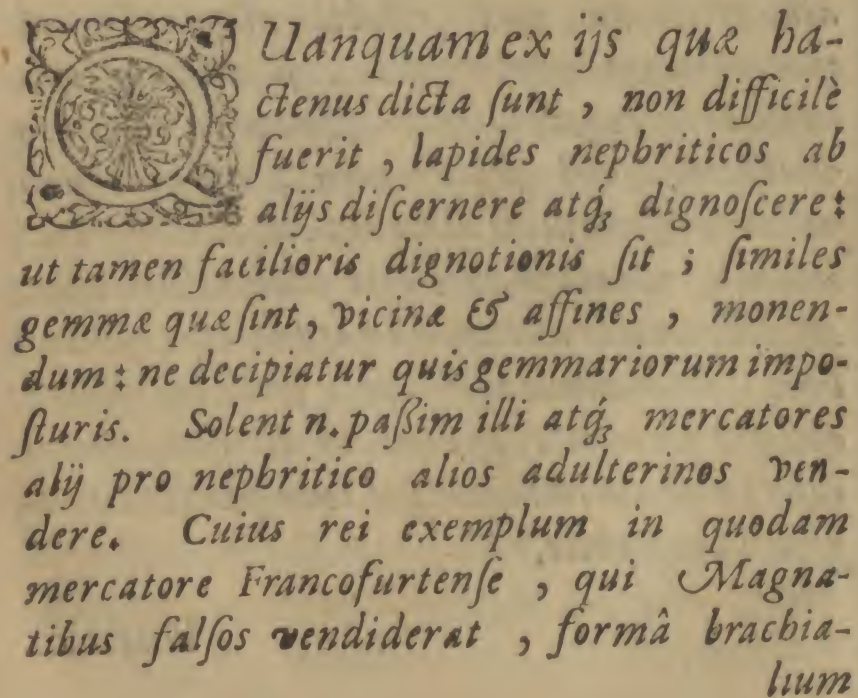 QUanquam ex ijs quæ ha-
ctenus dicta ſunt, non difficilè
fuerit, lapides nephriticos ab
alijs diſcernere atq́; dignoſcere:
ut tamen facilioris dignotionis ſit; ſimiles
gemmæ quæ ſint, vicinæ & affines, monen-
dum: ne decipiatur quis gemmariorum impo-
ſturis. Solent n. paßim illi atq́; mercatores
alij pro nephritico alios adulterinos ven-
dere. Cuius rei exemplum in quodam
mercatore Francofurtenſe, qui Magna-
tibus falſos vendiderat, formâ brachia-
lium